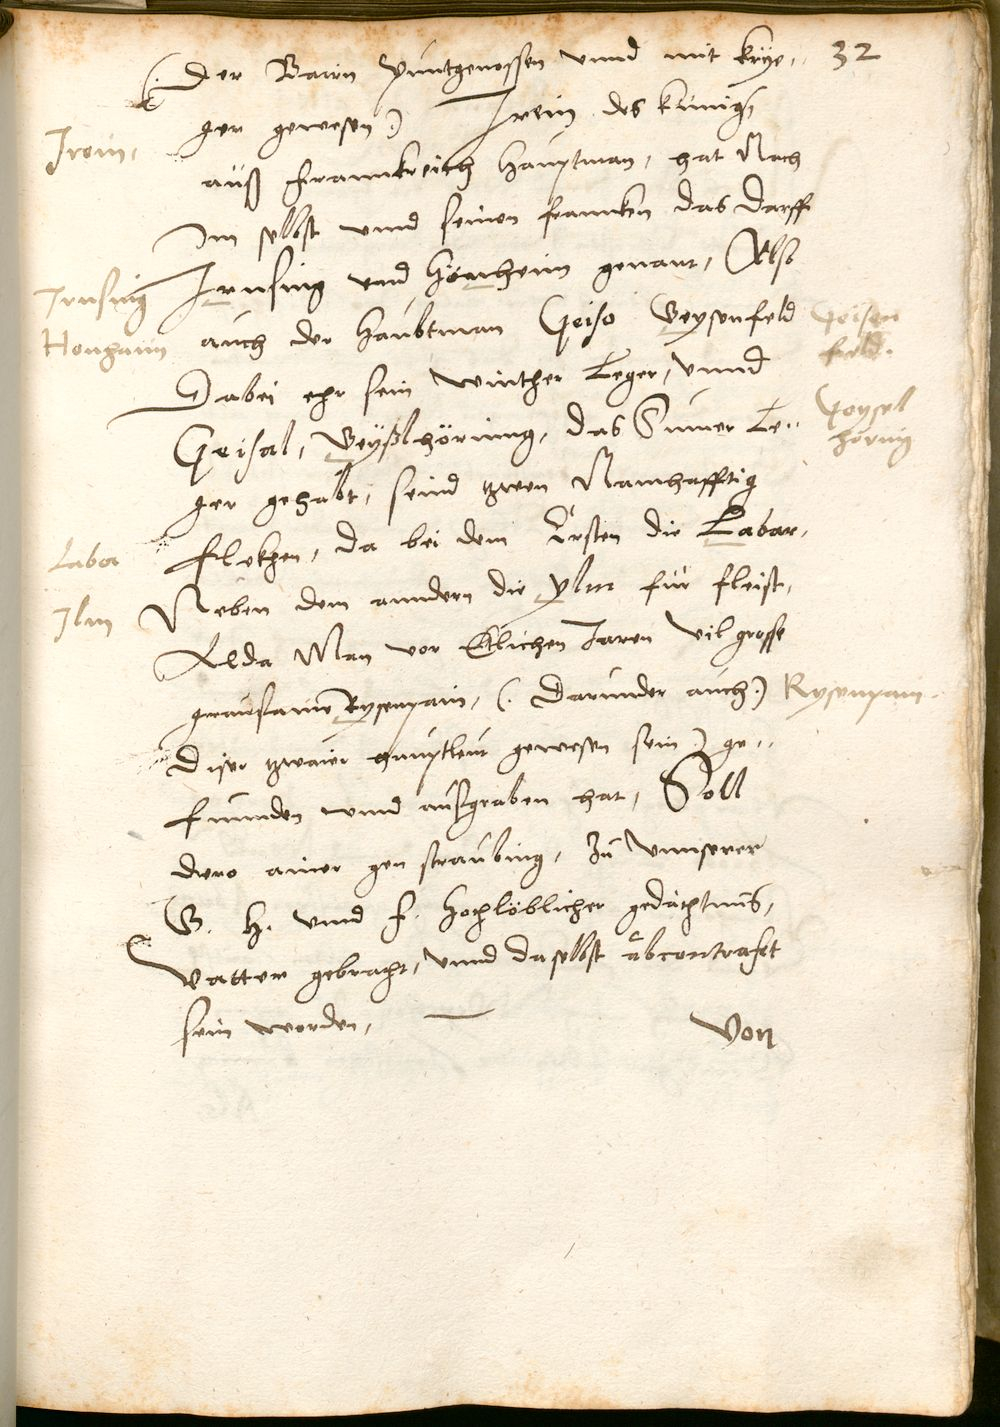 32
(. Der Bairn Puntgenossen vnnd mit krie-
ger gewesen) Irein des künigs
Irein,
auß Frannkreich Hauptman, hat Nach
Im selbst vnnd seinen frannckn das Darff
Irnsing
Irnsing vnd Honheim genant, Also
Honhaim
auch der Haubtman Geiso Geysenfeld
Geisen
feld.
Dabei ehr sein winther Leger, vnnd
Geisal, Geyßlhörinng, das Sumer Le-
Geysel
hörnig
ger gehabt, seind tzwen Namhafftig
Flekhen, da bei dem Ersten die Labar,
Labor
Neben dem anndern die Ylm für fleist,
Ilm
Alda Man vor Etlichen Jaren vil grosse
grausame Rysenpain, (. Darunder auch.)
Rysenpain.
diser tzwaier hauptleut gewesen sein) ge-
funnden vnnd außgraben hat, Soll
dero ainer gen straubing, Zu vnnserer
G. H. vnnd F. Hochlöblicher gedächtnus,
Vatter gebracht, vnnd daselbst abcontrafet
sein worden,
Von